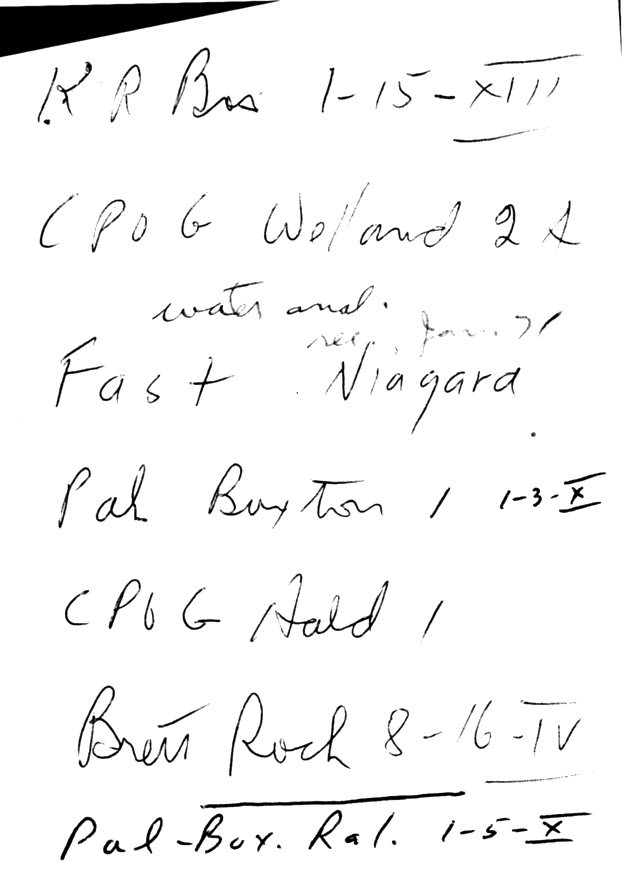 K R Bros 1-15-XIII
CPOG Welland 2 A
water anal.
rec. Jan. 71
Fast Niagara
Pah Buxton 1 1-3-X
CPOG Hald 1
Brett Roch 8-16-IV
Pal-Box. Ral. 1-5-X